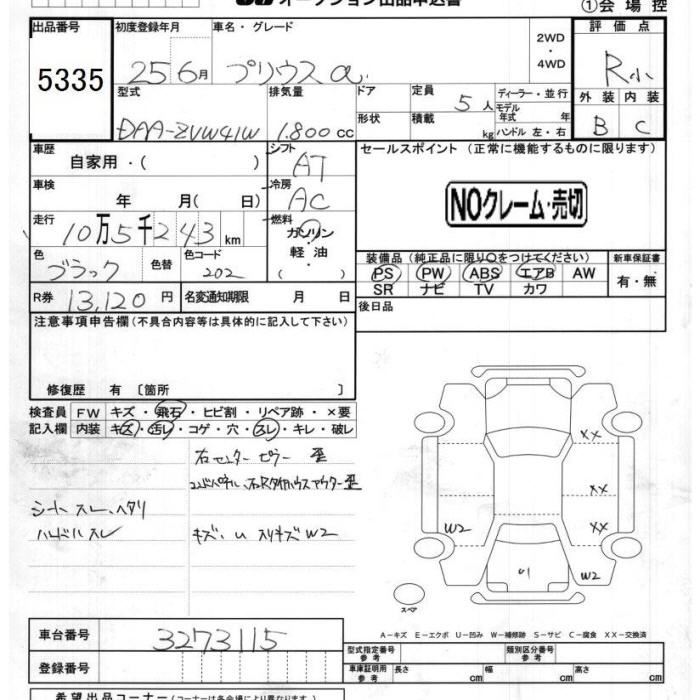 オークション出品申込書
①会場控
出品番号 初度登録年月 車名・グレード 2WD・4WD 評価点
5335 25 6月 プリウスα R小
型式 排気量 ドア 定員 5人 ディーラー・並行 外装 内装
DAA-ZVW41W 1.800cc 形状 積載 kg モデル年式 年 ハンドル 左・右 B C
車歴 自家用・( ) シフト AT セールスポイント (正常に機能するものに限ります)
車検 年 月( 日) 冷房 AC NOクレーム・売切
走行 10万5千243km 燃料 ガソリン 軽油 ( )
色 ブラック 色替 色コード 202 装備品 (純正品に限り○をつけてください) 新車保証書
PS PW ABS エアB AW 有・無
SR ナビ TV カワ
R券 13,120円 名変通知期限 月 日 後日品
注意事項申告欄(不具合内容等は具体的に記入して下さい)
修復歴 有 〔箇所 〕
検査員 FW キズ・飛石・ヒビ割・リペア跡・×要
記入欄 内装 キズ・汚レ・コゲ・穴・スレ・キレ・破レ
右センターピラー 歪
コンドパネル、右Rタイヤハウスアウター歪
シートスレ、ヘタリ
ハンドルスレ キズ、U スリキズ W2
XX
XX
W2 XX
U1 W2
スペア
A-キズ E-エクボ U-凹み W-補修跡 S-サビ C-腐食 XX-交換済
車台番号 3273115
型式指定番号 参考 類別区分番号 参考
登録番号 車庫証明用 参考 長さ cm 幅 cm 高さ cm
希望出品コーナー (コーナーは各会場により異なります。)